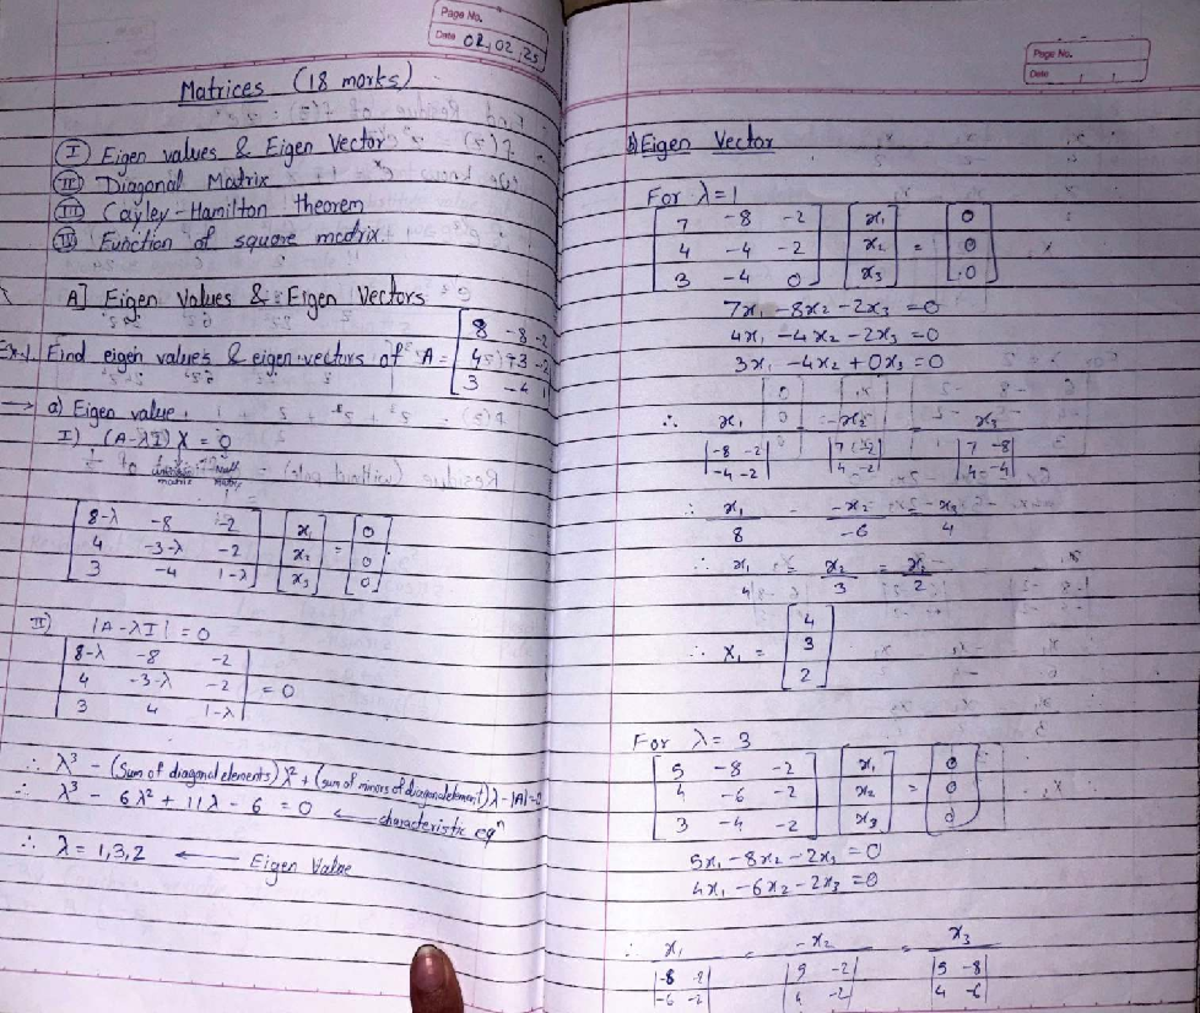 Page No.
Date 02,02,25
Matrices (18 marks)
I Eigen values & Eigen Vector
II Diagonal Matrix
III Cayley-Hamilton theorem
IV Function of square matrix.
A] Eigen Values & Eigen Vectors
Ex.1. Find eigen values & eigen vectors of A = [8 -8 -2
4 -3 -2
3 -4 1]
→ a) Eigen value.
I) (A-λI) X = 0
matrix
[8-λ -8 -2] [x₁] [0]
[4 -3-λ -2] [x₂] = [0]
[3 -4 1-λ] [x₃] [0]
II) |A-λI| = 0
|8-λ -8 -2|
|4 -3-λ -2| = 0
|3 4 1-λ|
∴ λ³ - (Sum of diagonal elements) λ² + (sum of minors of diagonal element) λ - |A| = 0
∴ λ³ - 6λ² + 11λ - 6 = 0 ← characteristic eqⁿ
∴ λ = 1,3,2 ← Eigen Value
Page No.
Date
b) Eigen Vector
For λ = 1
[7 -8 -2] [x₁] [0]
[4 -4 -2] [x₂] = [0]
[3 -4 0] [x₃] [0]
7x₁ - 8x₂ - 2x₃ = 0
4x₁ - 4x₂ - 2x₃ = 0
3x₁ - 4x₂ + 0x₃ = 0
∴ x₁ = -x₂ = x₃
|-8 -2| |7 -2| |7 -8|
|-4 -2| |4 -2| |4 -4|
∴ x₁ - -x₂ - x₃
8 -6 4
∴ x₁ = x₂ = x₃
4 3 2
∴ X₁ = [4
3
2]
For λ = 3
[5 -8 -2] [x₁] [0]
[4 -6 -2] [x₂] = [0]
[3 -4 -2] [x₃] [0]
5x₁ - 8x₂ - 2x₃ = 0
4x₁ - 6x₂ - 2x₃ = 0
∴ x₁ = -x₂ = x₃
|-8 -2| |5 -2| |5 -8|
|-6 -2| |4 -2| |4 -6|